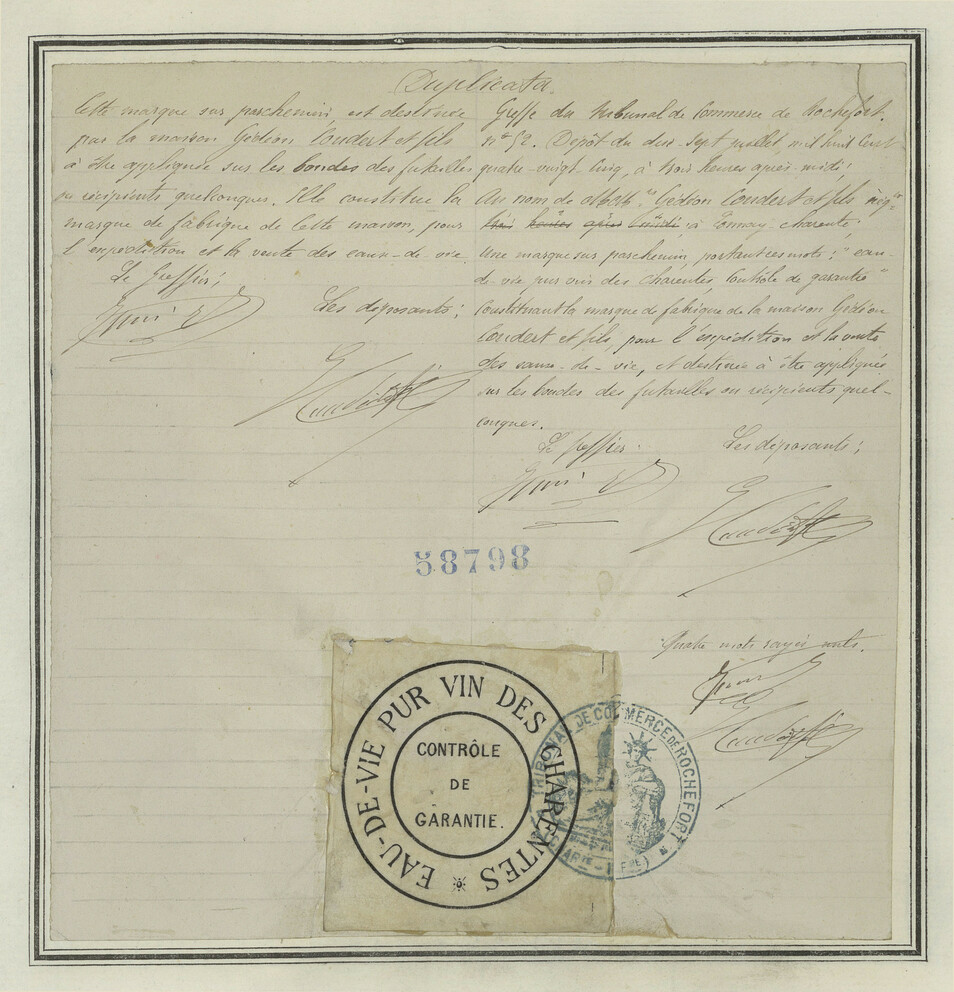 Duplicata
Cette marque sur parchemin est destinée
par la maison Gédéon Coudert et fils
à être appliquée sur les bondes des futailles
ou récipients quelconques. Elle constitue la
marque de fabrique de cette maison, pour
l'expédition et la vente des eaux-de-vie.
Le Greffier;
Les déposants;
Greffe du Tribunal de Commerce de Rochefort.
n° 52. Dépôt du dix-sept juillet mil huit cent
quatre-vingt-cinq, à trois heures après-midi;
Au nom de Gédéon Coudert et fils nég.ts
trois heures après midi à Tonnay-Charente
Une marque sur parchemin, portant ces mots: "eau-
de-vie pur vin des Charentes Contrôle de garantie"
Constituant la marque de fabrique de la maison Gédéon
Coudert et fils, pour l'expédition et la vente
des eaux-de-vie, et destinée à être appliquée
sur les bondes des futailles ou récipients quel-
conques.
Le Greffier.
Les déposants;
58798
Quatre mots rayés nuls.
EAU-DE-VIE PUR VIN DES CHARENTES
CONTRÔLE
DE
GARANTIE.
TRIBUNAL DE COMMERCE DE ROCHEFORT